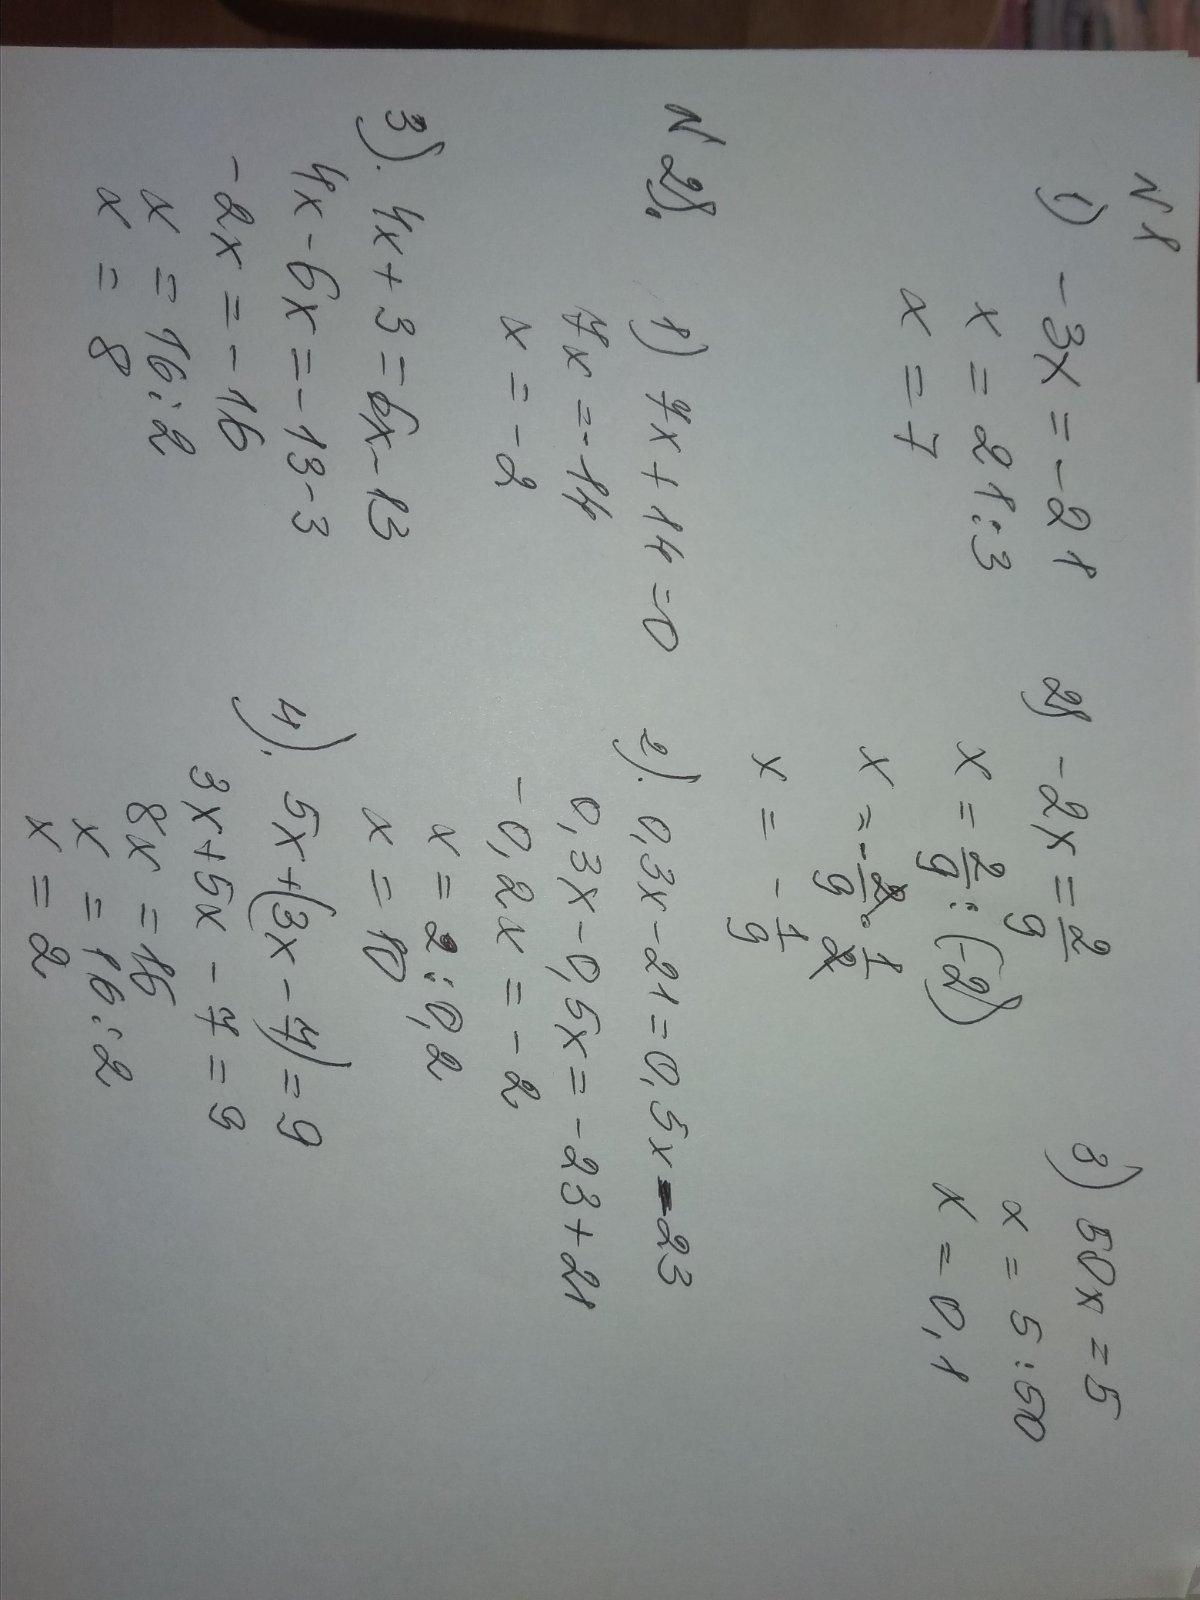 N 1
1) -3x = -21
x = 21:3
x = 7
2) -2x = 2/9
x = 2/9 : (-2)
x = -2/9 · 1/2
x = -1/9
3) 50x = 5
x = 5:50
x = 0,1
N 2).
1) 7x + 14 = 0
7x = -14
x = -2
2). 0,3x - 21 = 0,5x - 23
0,3x - 0,5x = -23 + 21
-0,2x = -2
x = 2:0,2
x = 10
3). 4x + 3 = 6x - 13
4x - 6x = -13 - 3
-2x = -16
x = 16:2
x = 8
4). 5x + (3x - 7) = 9
3x + 5x - 7 = 9
8x = 16
x = 16:2
x = 2